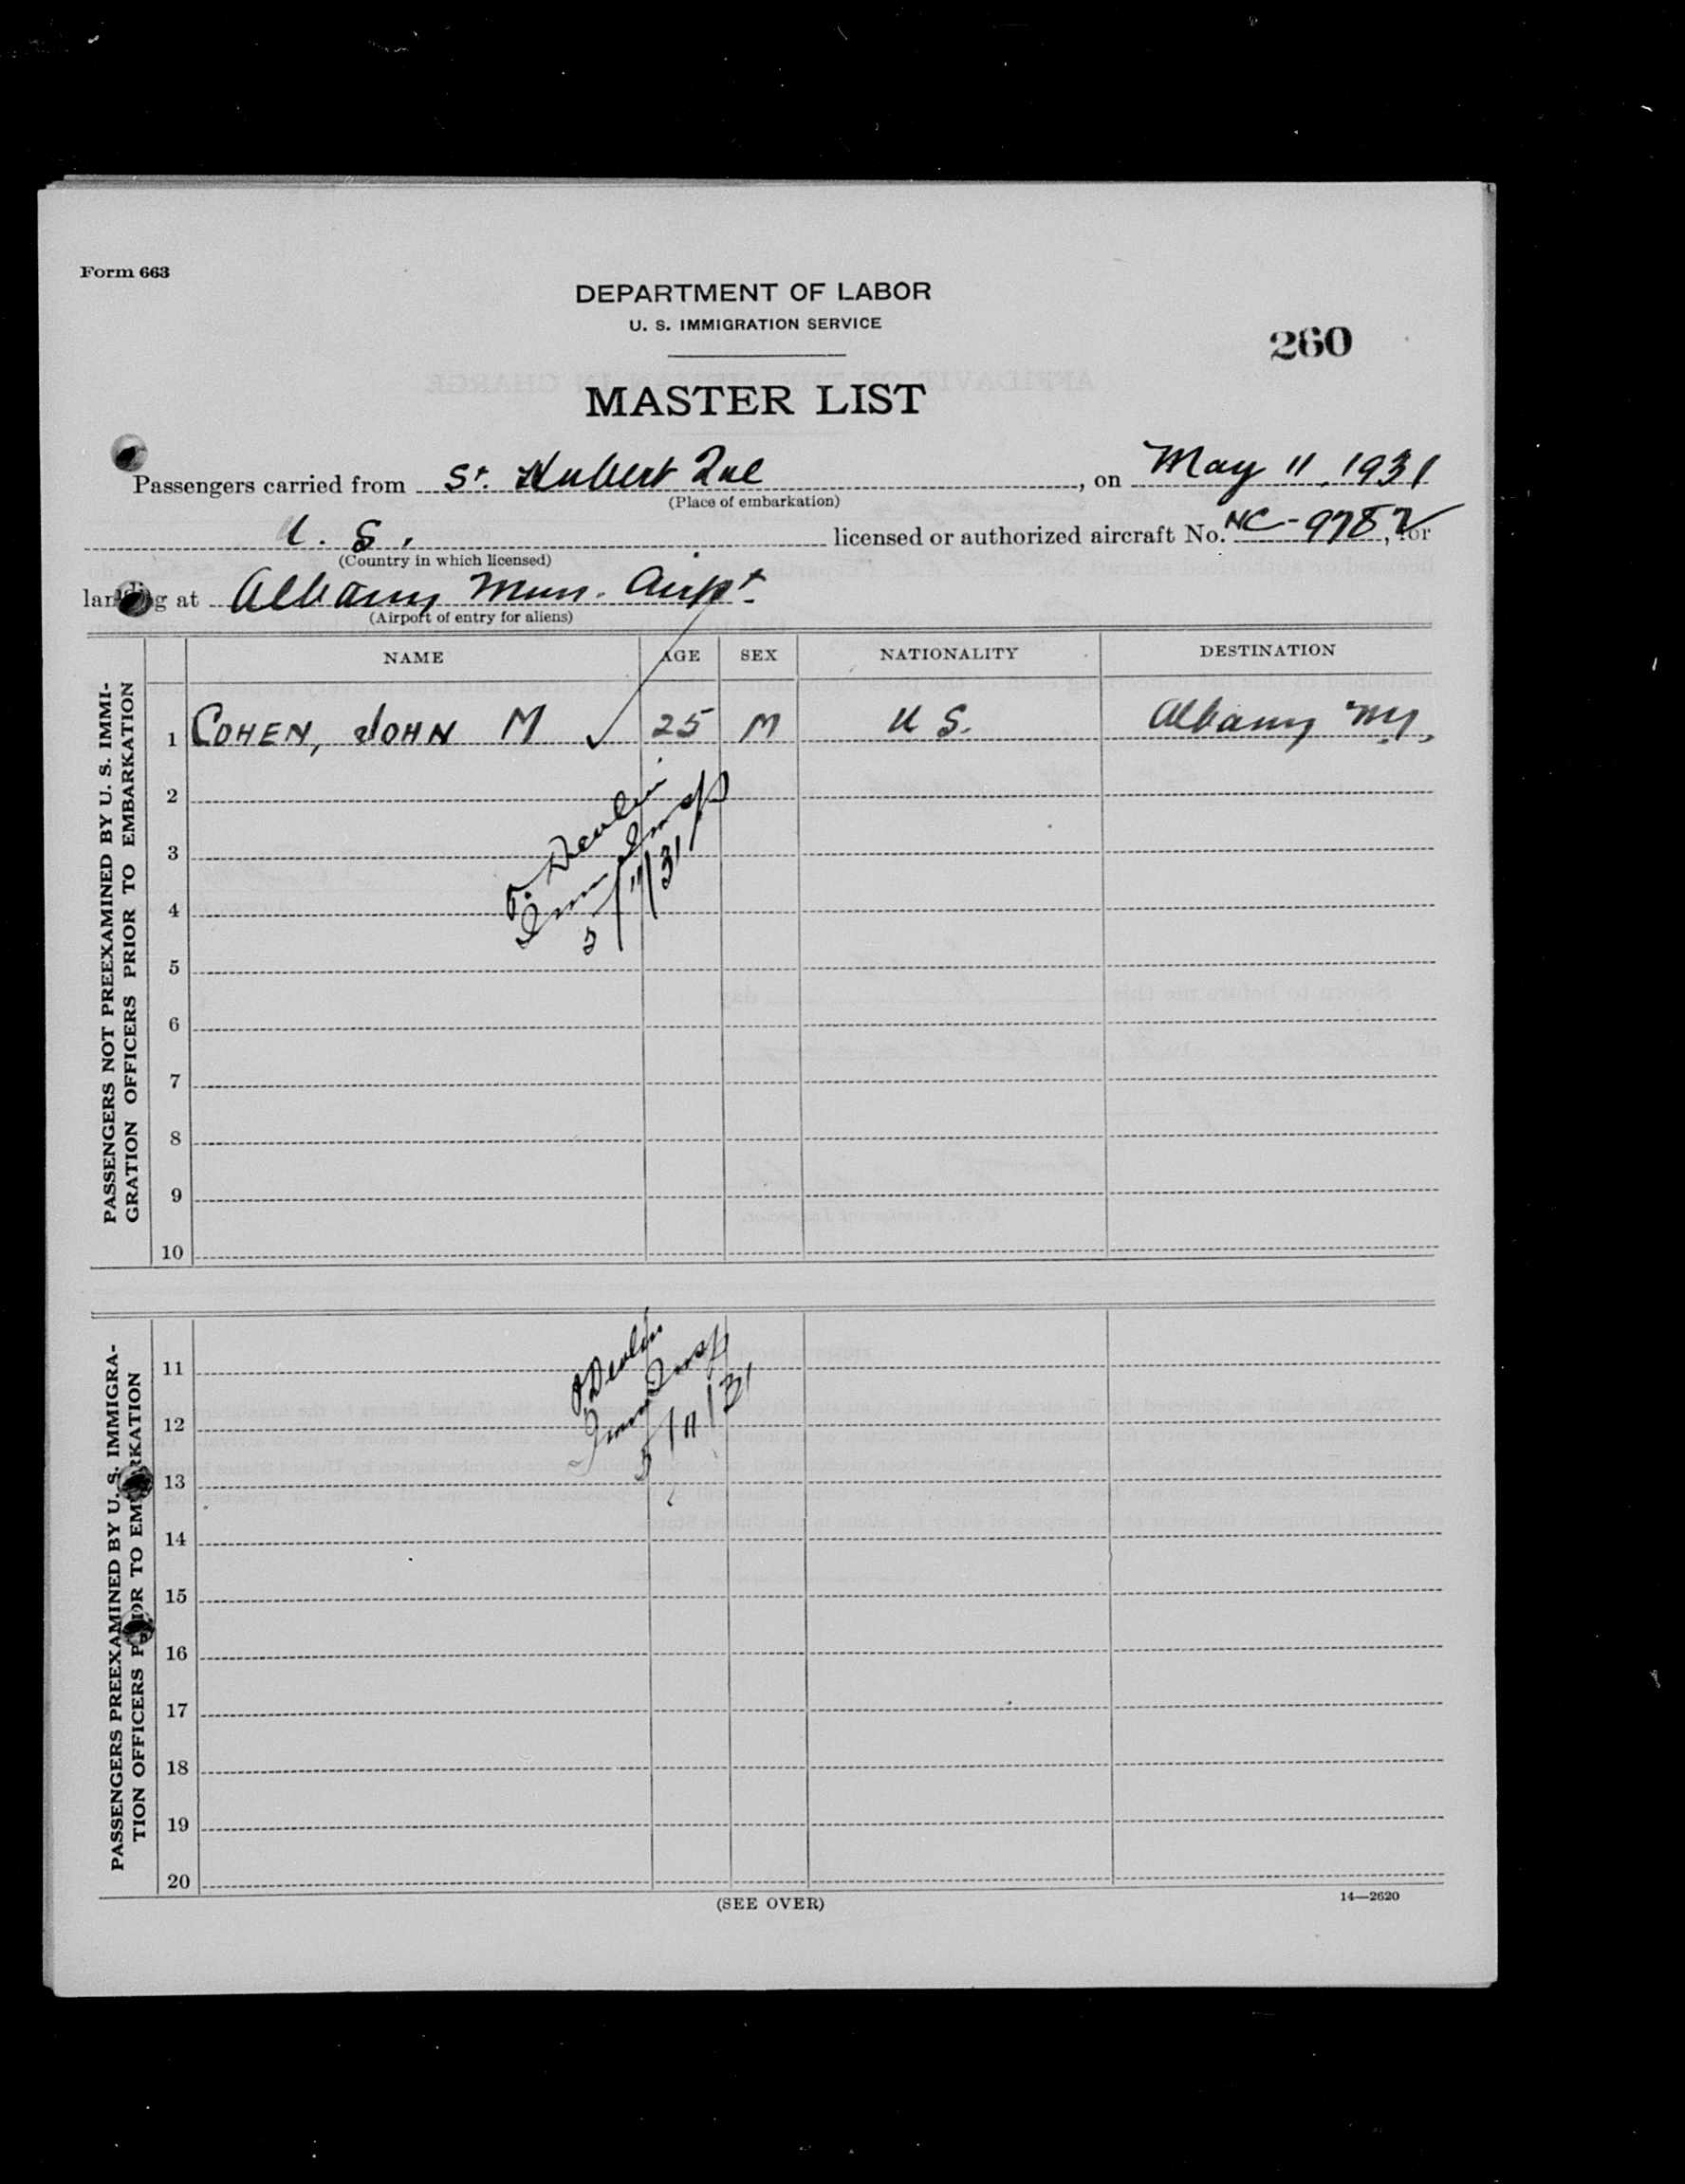 Form 663
DEPARTMENT OF LABOR
U. S. IMMIGRATION SERVICE
260
MASTER LIST
Passengers carried from St. Hubert Que, on May 11, 1931
(Place of embarkation)
U. S. licensed or authorized aircraft No. NC-9782, for
(Country in which licensed)
landing at Albany Mun. Airpt.
(Airport of entry for aliens)
NAME AGE SEX NATIONALITY DESTINATION
PASSENGERS NOT PREEXAMINED BY U. S. IMMI-
GRATION OFFICERS PRIOR TO EMBARKATION
1 COHEN, JOHN M ✓ 25 M U S. Albany N.Y.
2
3
4
Devlin
Imm Insp
5/11/31
5
6
7
8
9
10
PASSENGERS PREEXAMINED BY U. S. IMMIGRA-
TION OFFICERS PRIOR TO EMBARKATION
11
12
13
Devlin
Imm Insp
5/11/31
14
15
16
17
18
19
20
(SEE OVER)
14—2620